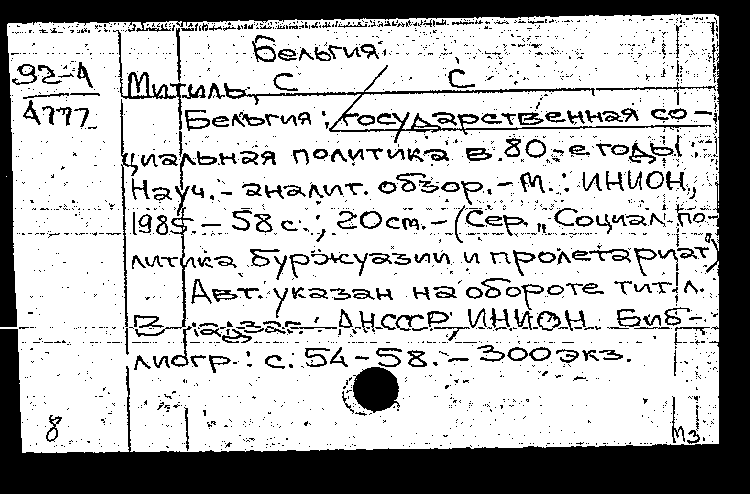 Бельгия.
92-4
4777
Митиль, С С
Бельгия: государственная со-
циальная политика в 80-е годы:
Науч.-аналит. обзор.-М.: ИНИОН,
1985.- 58 с.; 20 см.-(Сер. „Социал. по-
литика буржуазии и пролетариат")
Авт. указан на обороте тит. л.
В надзаг.: АН СССР, ИНИОН. Биб-
лиогр.: с. 54-58. - 300 экз.
8